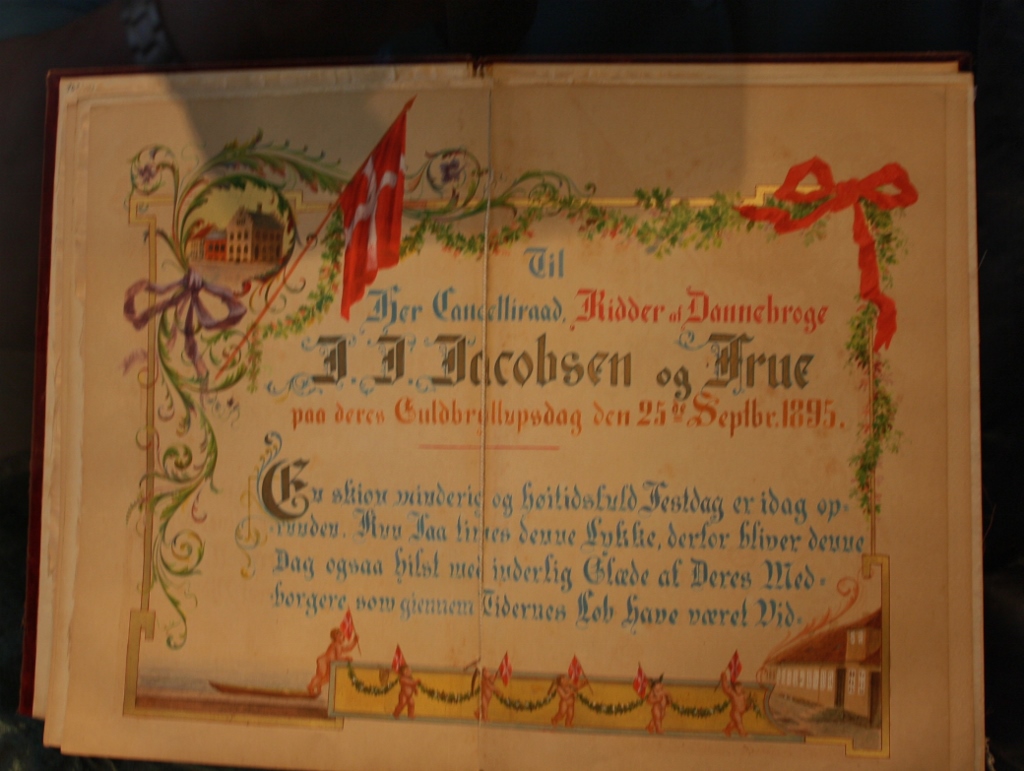 Til
Her Cancelliraad, Ridder af Dannebroge
J. J. Jacobsen og Frue
paa deres Guldbryllupsdag den 25de Septbr. 1895.
En skjøn minderig og høitidsfuld Festdag er idag op-
runden. Kun Faa times denne Lykke, derfor bliver denne
Dag ogsaa hilst med inderlig Glæde af Deres Med-
borgere som gjennem Tidernes Løb have været Vid-